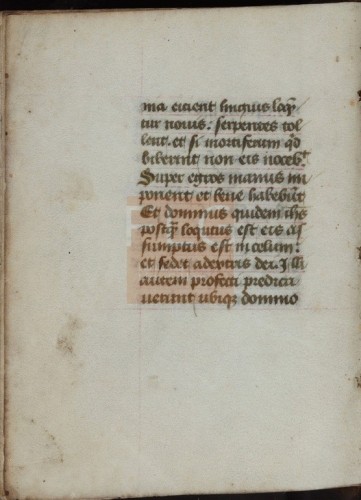 ma eicient linguis loq̄
tur nouis: serpentes tol
lent. et si mortiferum qd̄
biberint non eis noceb̄t
Super egros manus im
ponent et bene habebūt
Et dominus quidem ihs
postq̄ loqutus est eis as
sumptus est in celum:
et sedet a dextris dei. Illi
autem profecti predica
uerunt ubiqȝ domino